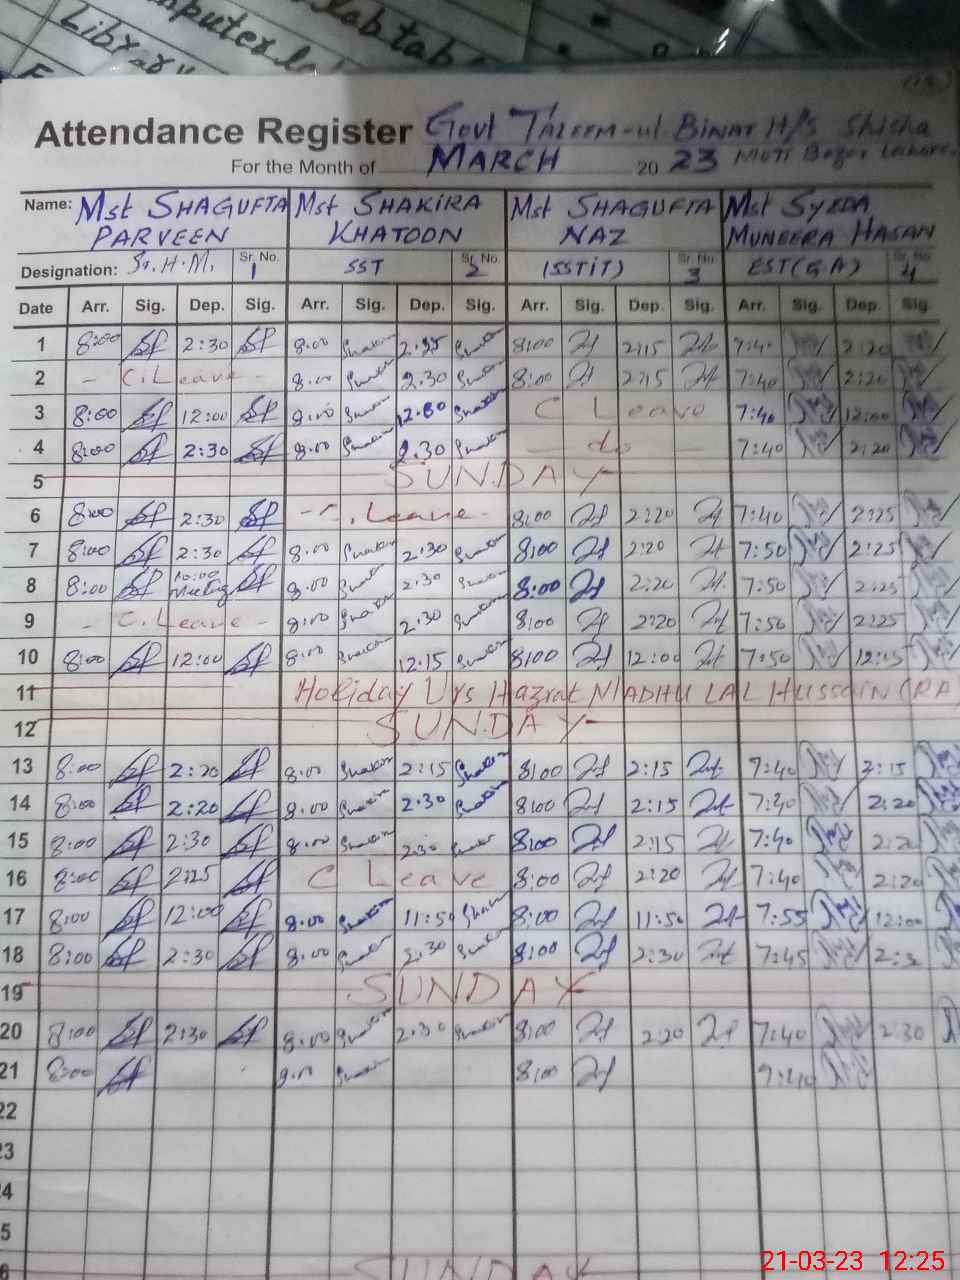 Computer lab lab tab
Library
(13)
Attendance Register Govt Taleem-ul Binat H/S Shisha
For the Month of MARCH 2023 Moti Bazar Lahore.
Name: Mst SHAGUFTA PARVEEN Mst SHAKIRA KHATOON Mst SHAGUFTA NAZ Mst SYEDA MUNEERA HASAN
Designation: Sr. H.M. Sr. No. 1 SST Sr. No. 2 (SSTiT) Sr. No. 3 EST(G.A) Sr. No. 4
Date Arr. Sig. Dep. Sig. Arr. Sig. Dep. Sig. Arr. Sig. Dep. Sig. Arr. Sig. Dep. Sig.
1 8:00 2:30 8.00 Shakira 2.35 Shakira 8:00 2:15 7:40 2:20
2 - C. Leave - 8.00 Shakira 2.30 Shakira 8:00 2:15 7:40 2:20
3 8:00 12:00 8.00 Shakira 12.00 Shakira C Leave 7:40 12:00
4 8:00 2:30 8.00 Shakira 2.30 Shakira - do - 7:40 2:20
5 SUNDAY
6 8:00 2:30 - C. Leave - 8:00 2:20 7:40 2:25
7 8:00 2:30 8.00 Shakira 2.30 Shakira 8:00 2:20 7:50 2:25
8 8:00 10:00 Meeting 8.00 Shakira 2.30 Shakira 8:00 2:20 7:50 2:25
9 - C. Leave - 8.00 Shakira 2.30 Shakira 8:00 2:20 7:50 2:25
10 8:00 12:00 8.00 Shakira 12.15 Shakira 8:00 12:00 7:50 12:05
11 Holiday Urs Hazrat MADHU LAL HUSSAIN (RA)
12 SUNDAY
13 8:00 2:20 8.00 Shakira 2:15 Shakira 8:00 2:15 7:40 2:15
14 8:00 2:20 8.00 Shakira 2.30 Shakira 8:00 2:15 7:40 2:20
15 8:00 2:30 8.00 Shakira 2:30 Shakira 8:00 2:15 7:40 2:20
16 8:00 2:25 C Leave 8:00 2:20 7:40 2:20
17 8:00 12:00 8.00 Shakira 11:50 Shakira 8:00 11:50 7:55 12:00
18 8:00 2:30 8.00 Shakira 2.30 Shakira 8:00 2:30 7:45
19 SUNDAY
20 8:00 2:30 8.00 Shakira 2.30 Shakira 8:00 2:20 7:40 2:30
21 8:00 Shakira 8:00 7:40
22
23
24
5
6 SUNDAY
21-03-23 12:25